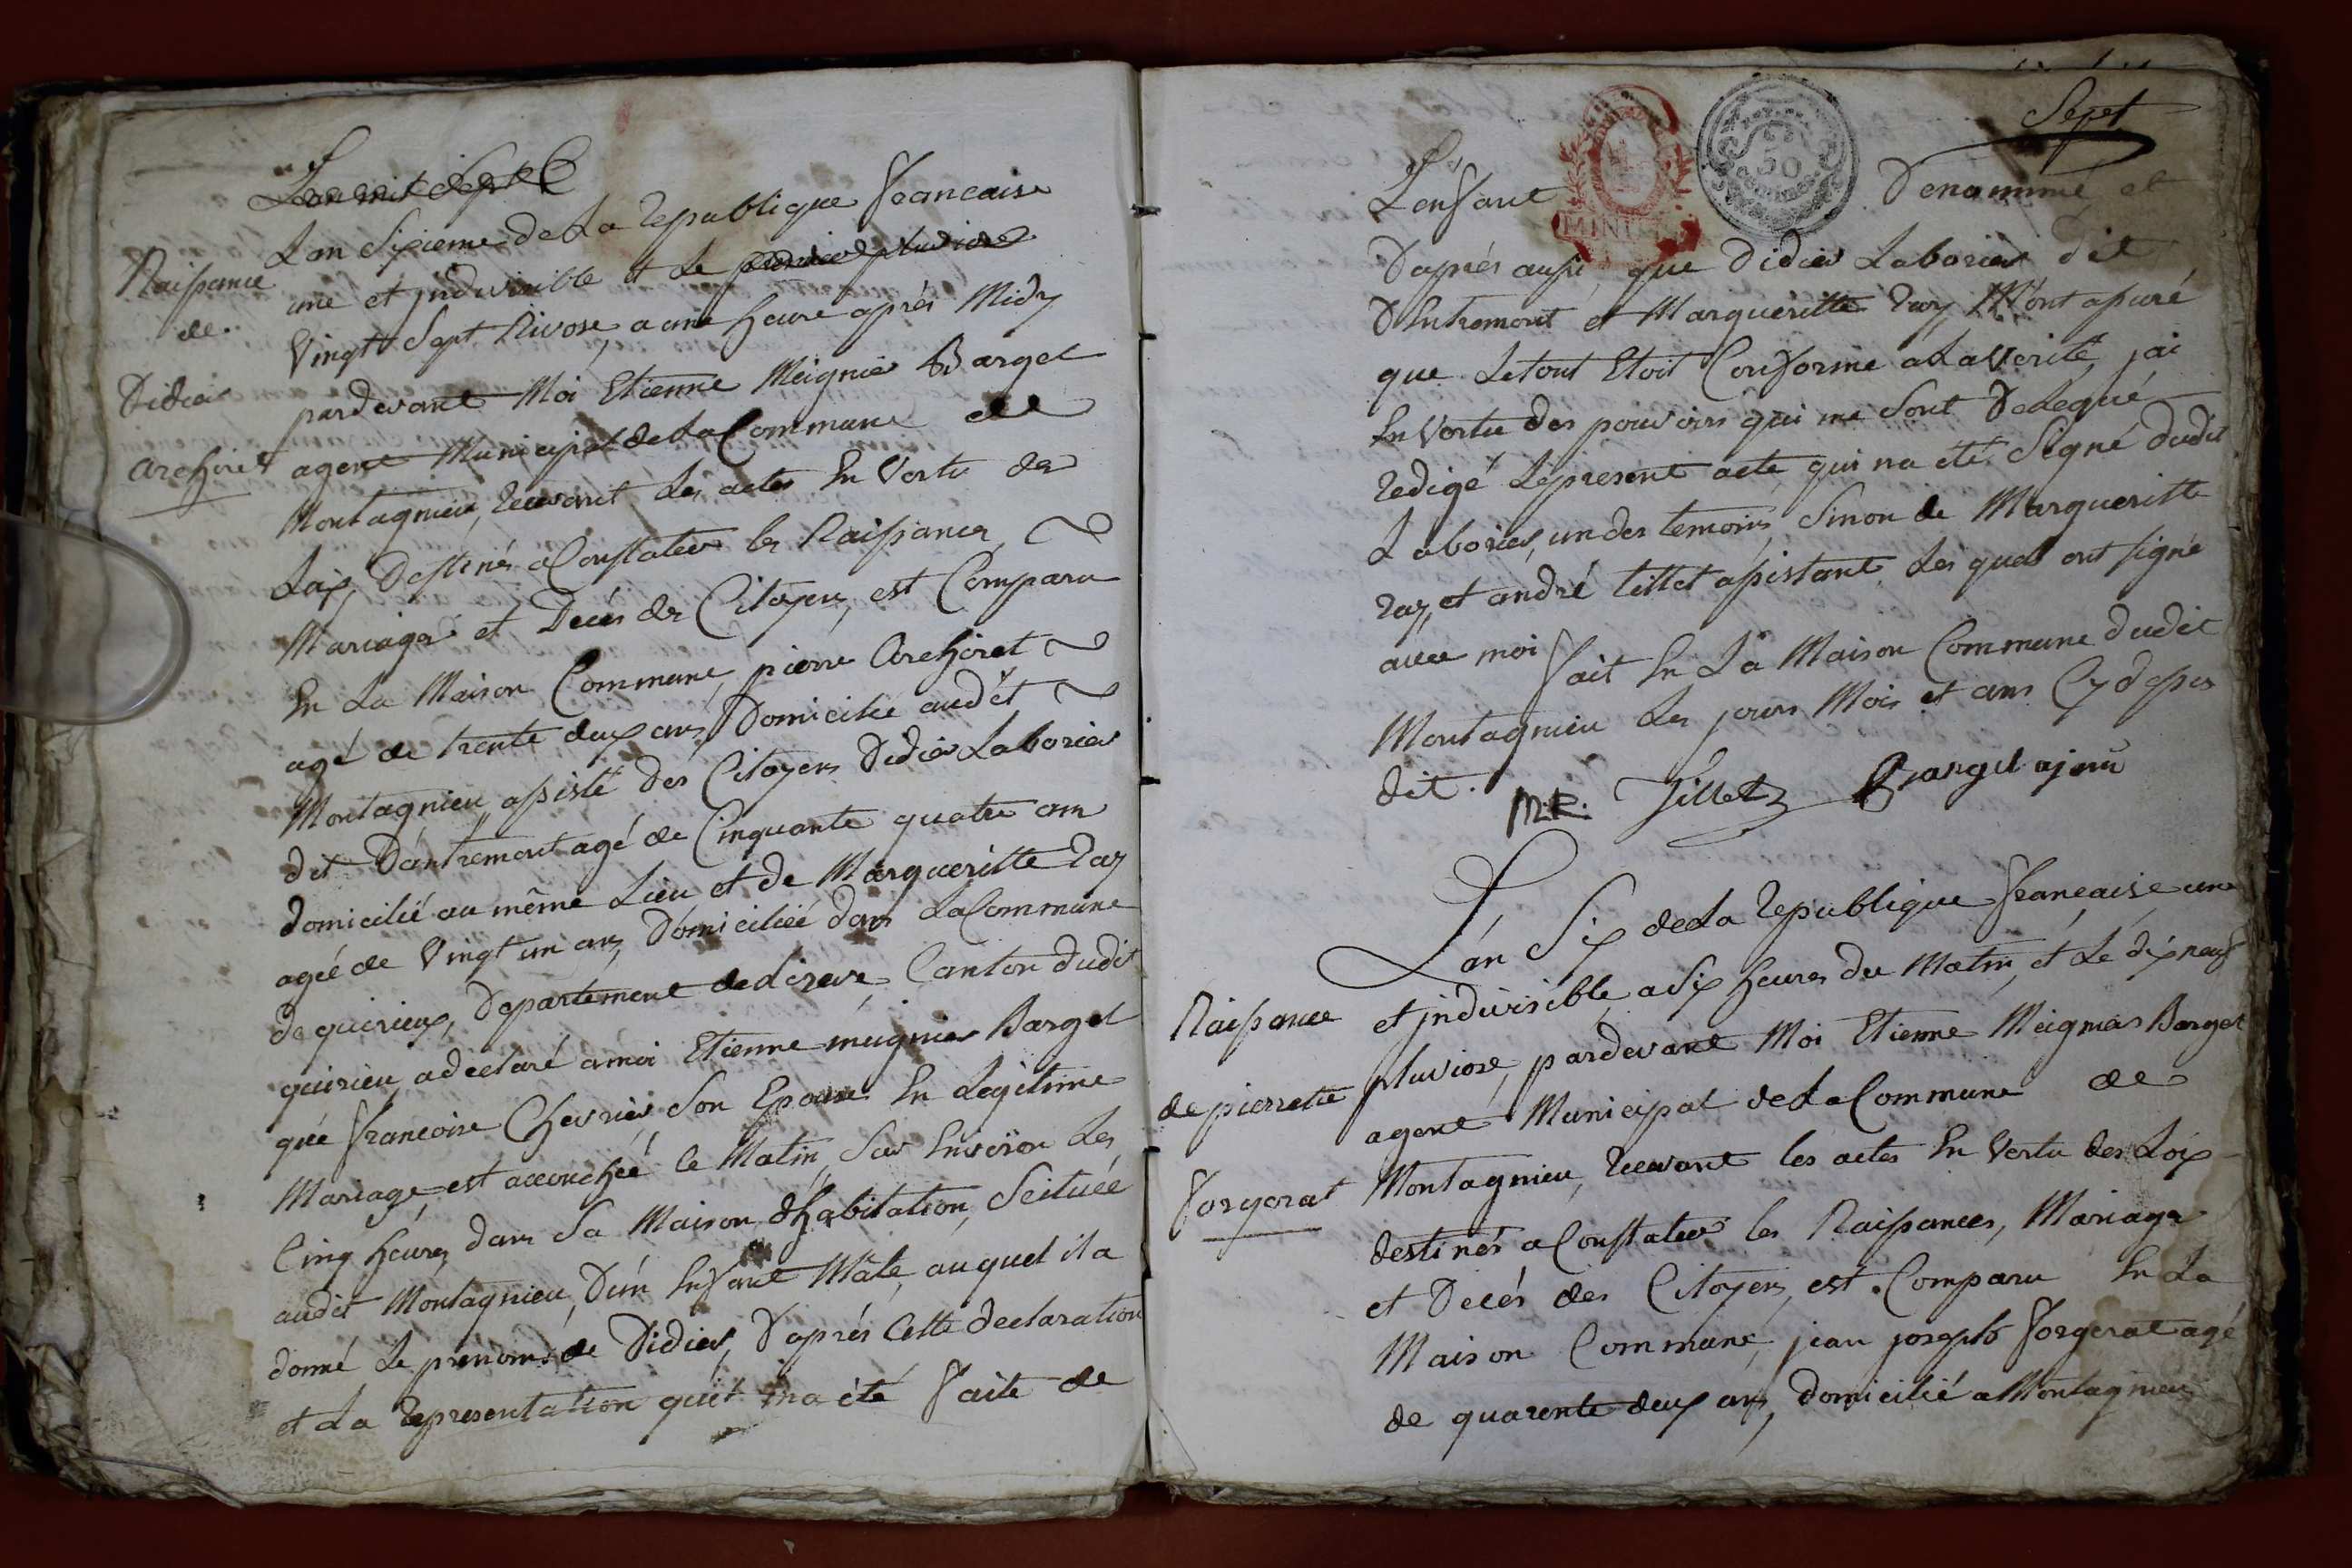 L'an mil sept C
Naissance
de
Didier
archiret
L an Sixieme de La republique francaise
une et jndivisible et Le premier pluviose
Vingt Sept Nivose, a une heure aprés Midy
pardevant Moi Etienne Meignier Barget
agent Municipal de La Commune de
Montagnieu, recevant Les actes En Vertu des
Loix, Destinés a Constater les Naissances,
Mariages et Decés des Citoyens, est Comparu
En La Maison Commune, pierre Archiret
agé de trente deux ans, Domicilié audit
Montagnieu, assisté des Citoyens Didier Laborier
dit D'antremont agé de Cinquante quatre ans
domicilié au même Lieu et de Margueritte ray
agée de Vingt un ans, Domiciliée dans La Commune
de quirieux, Departement de Lizere, Canton dudit
quirieu, a declaré a moi Etienne meignier Barget
que francoise Chevrier Son Epouse En Legitime
Mariage, est accouchée Ce Matin, Sur Environ Les
Cinq heures, dans Sa Maison d'habitation, Scituée
audit Montagnieu, D'un Enfant Mâle, auquel il a
donné Le prenoms de Didier, D'aprés Cette declaration
et La representation quil m'a été faite de
Sept
MINUTE
50
centimes
L'enfant Denommé, et
D'aprés aussi, que Didier Laborier dit
D'Entremont et Margueritte ray M'ont assuré
que Le tout Etoit Conforme a La Verité, jai
En Vertu des pouvoirs qui me Sont Delegué
redigé Le present acte, qui na eté Signé dudit
Laborier, un des temoins, Sinon de Margueritte
ray, et andré tillet assistant, Les quels ont signé
avec moi fait En La Maison Commune dudit
Montagnieu Les jours Mois et ans Cy dessus
dit.
M.R. Tillet Barget agent
Naissance
de pierrette
forgerat
L'an Six de La republique francaise une
et jndivisible, a Six heures du Matin, et Le dix neuf
pluviose, pardevant Moi Etienne Meignier Barget
agent Municipal de La Commune de
Montagnieu, recevant les actes En Vertu des Loix
destinés a Constater les Naissances, Mariages
et Decés des Citoyens, est Comparu En La
Maison Commune, jean joseph forgerat agé
de quarente deux ans, Domicilié a Montagnieu